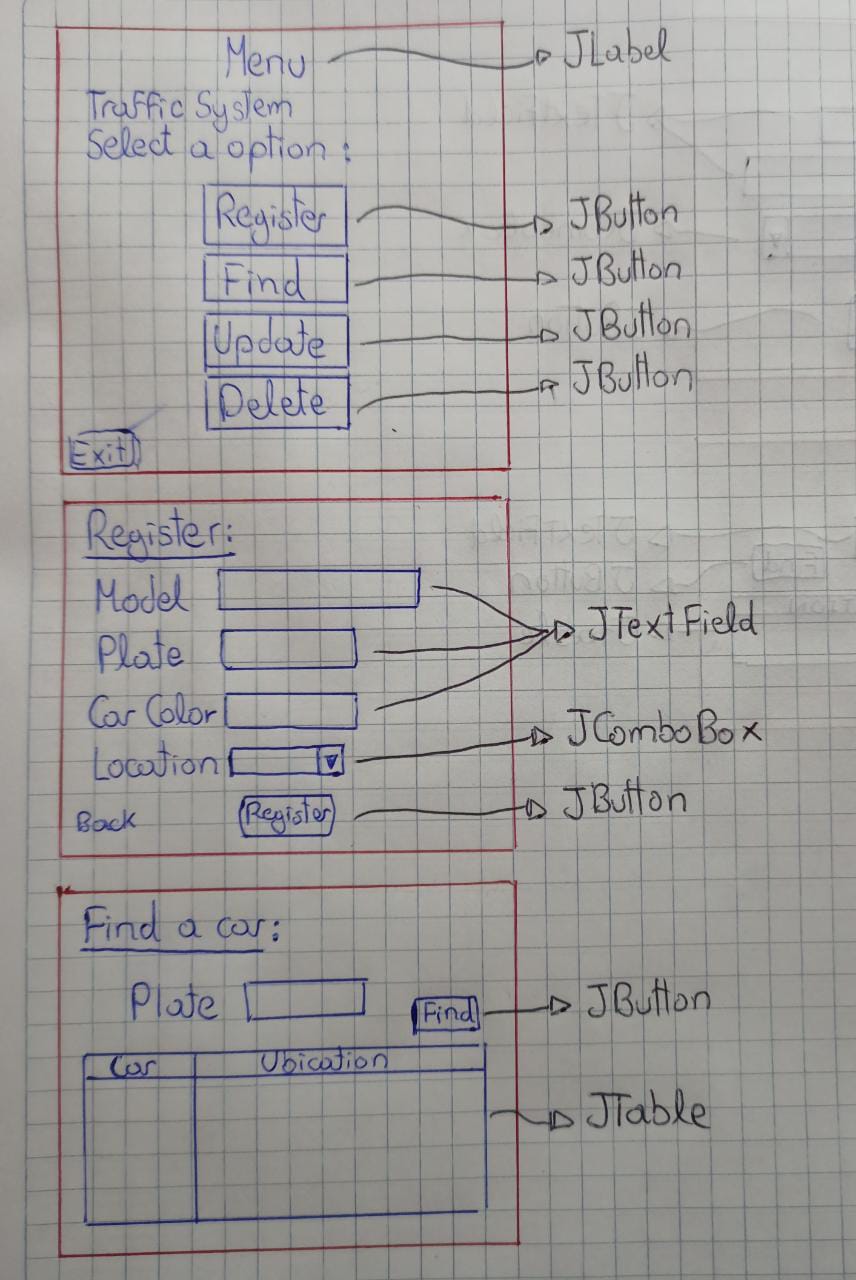 Menu JLabel
Traffic System
Select a option :
Register JButton
Find JButton
Update JButton
Delete JButton
Exit
Register:
Model
Plate JTextField
Car Color
Location JComboBox
Back Register JButton
Find a car:
Plate Find JButton
Car Ubication
JTable